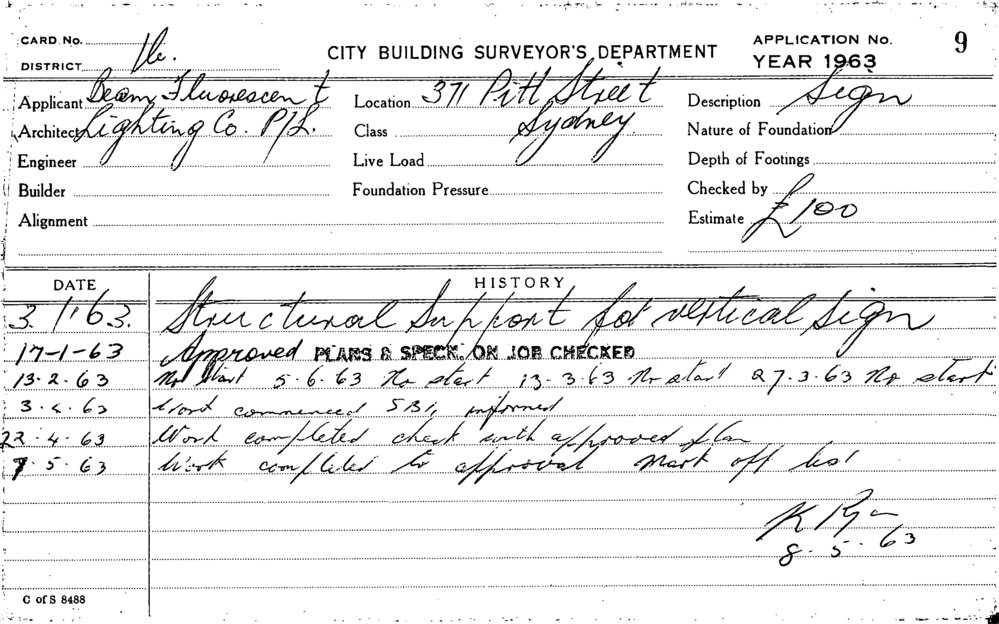 CARD No.
DISTRICT
CITY BUILDING SURVEYOR'S DEPARTMENT
APPLICATION No. 9
YEAR 1963
Applicant Beam Fluorescent
Architect Lighting Co. P/L.
Engineer
Builder
Alignment
Location 371 Pitt Street
Class Sydney
Live Load
Foundation Pressure
Description Sign
Nature of Foundation
Depth of Footings
Checked by
Estimate £100
DATE HISTORY
3.1.63. Structural Support for vertical Sign
17-1-63 Approved PLANS & SPECK. ON JOB CHECKED
13.2.63 No start 5.6.63 No start 13.3.63 No start 27.3.63 No start
3.4.63 Work commenced informed
22.4.63 Work completed check with approved plan
7.5.63 Work completed to approval Mark off list
K Ryan
8.5.63
C of S 8488